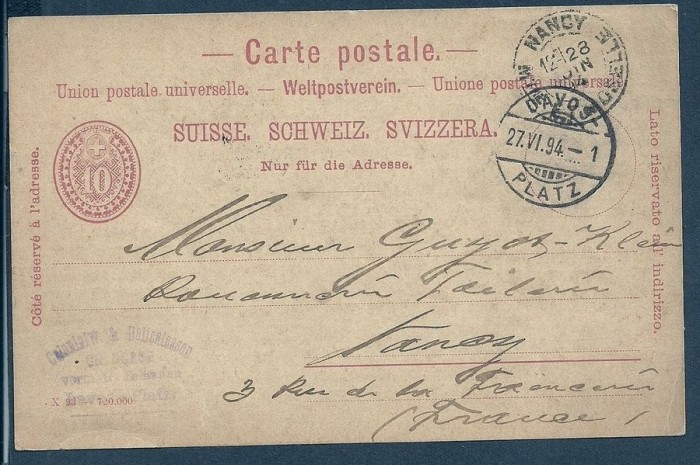 — Carte postale. —
Union postale universelle. — Weltpostverein. — Unione postale universale
SUISSE. SCHWEIZ. SVIZZERA.
Nur für die Adresse.
10
Côté réservé à l'adresse.
Lato riservato all' indirizzo.
NANCY
12 28
JUIN
94
DAVOS
27.VI.94.— 1
PLATZ
Monsieur Guyot-Klein
Nancy
3 Rue de la
(France)
Colonialw. & Delicatessen
X 93 — 720,000.